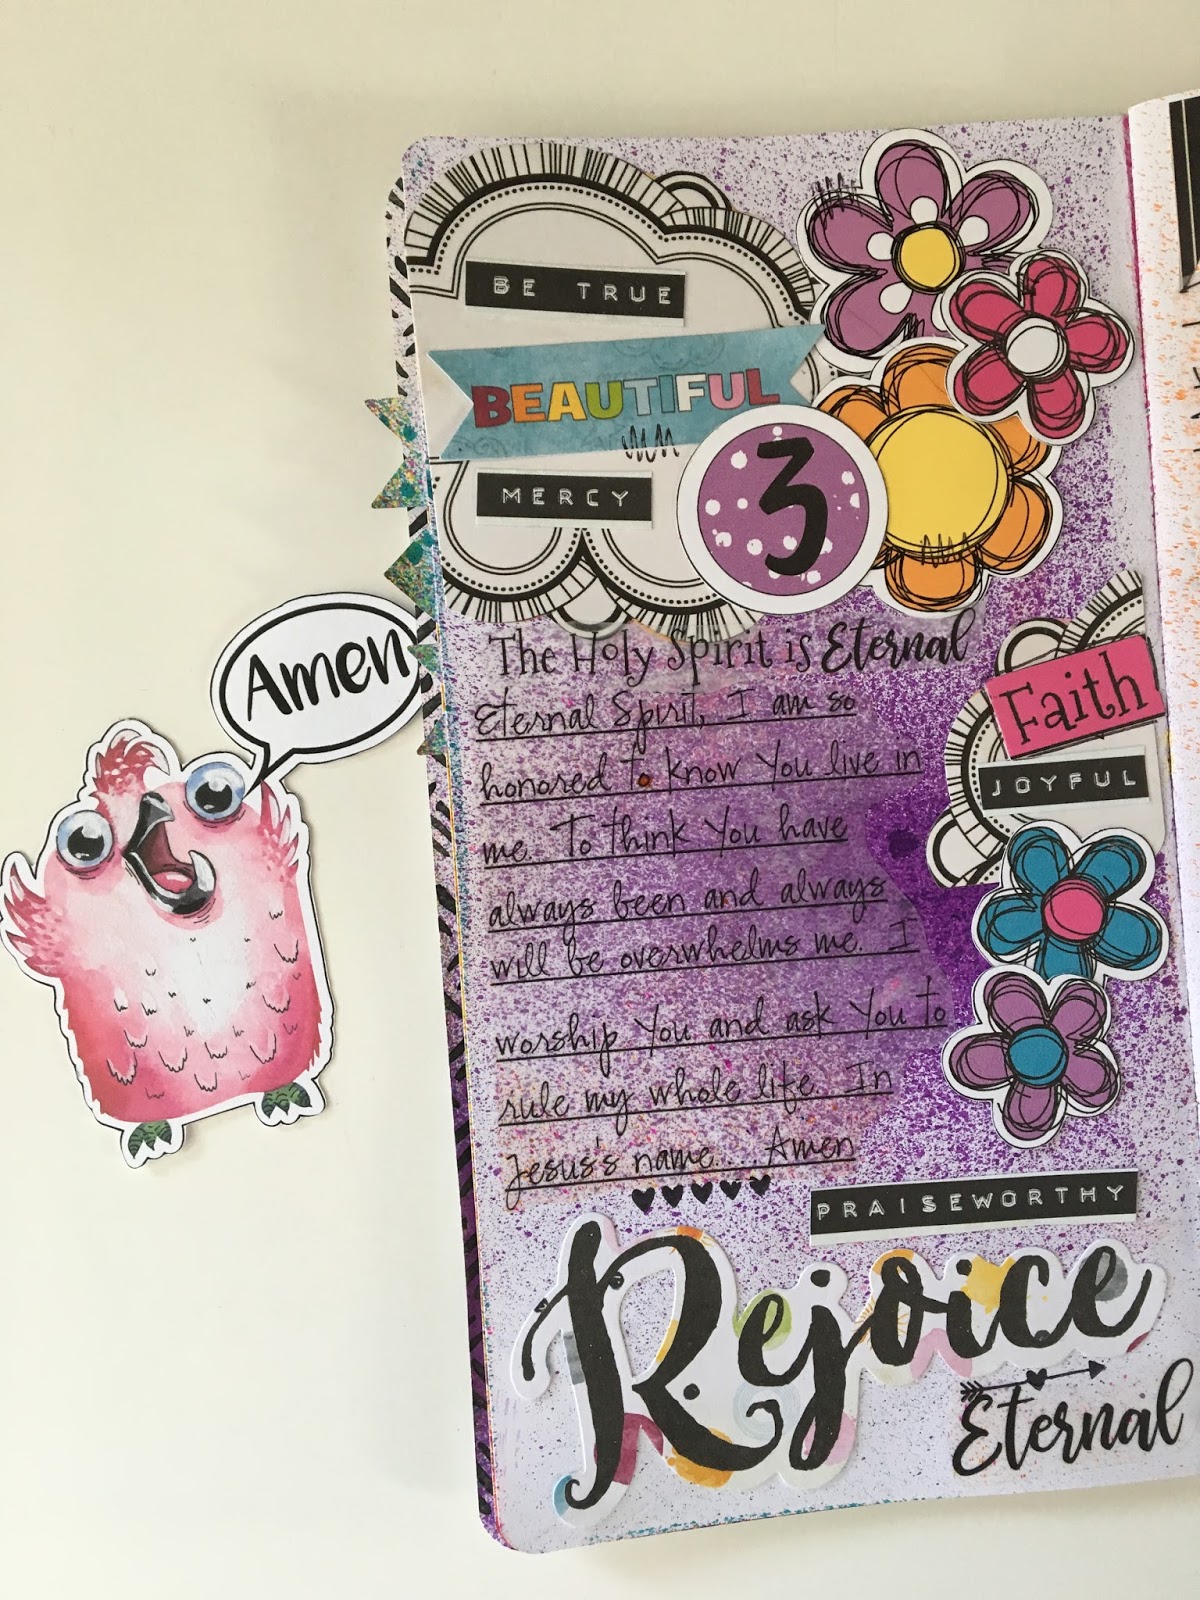 BE TRUE
BEAUTIFUL
MERCY
3
The Holy Spirit is Eternal
Eternal Spirit, I am so
honored to know You live in
me. To think You have
always been and always
will be overwhelms me. I
worship You and ask You to
rule my whole life. In
Jesus's name. Amen
Amen
Faith
JOYFUL
PRAISEWORTHY
Rejoice
Eternal